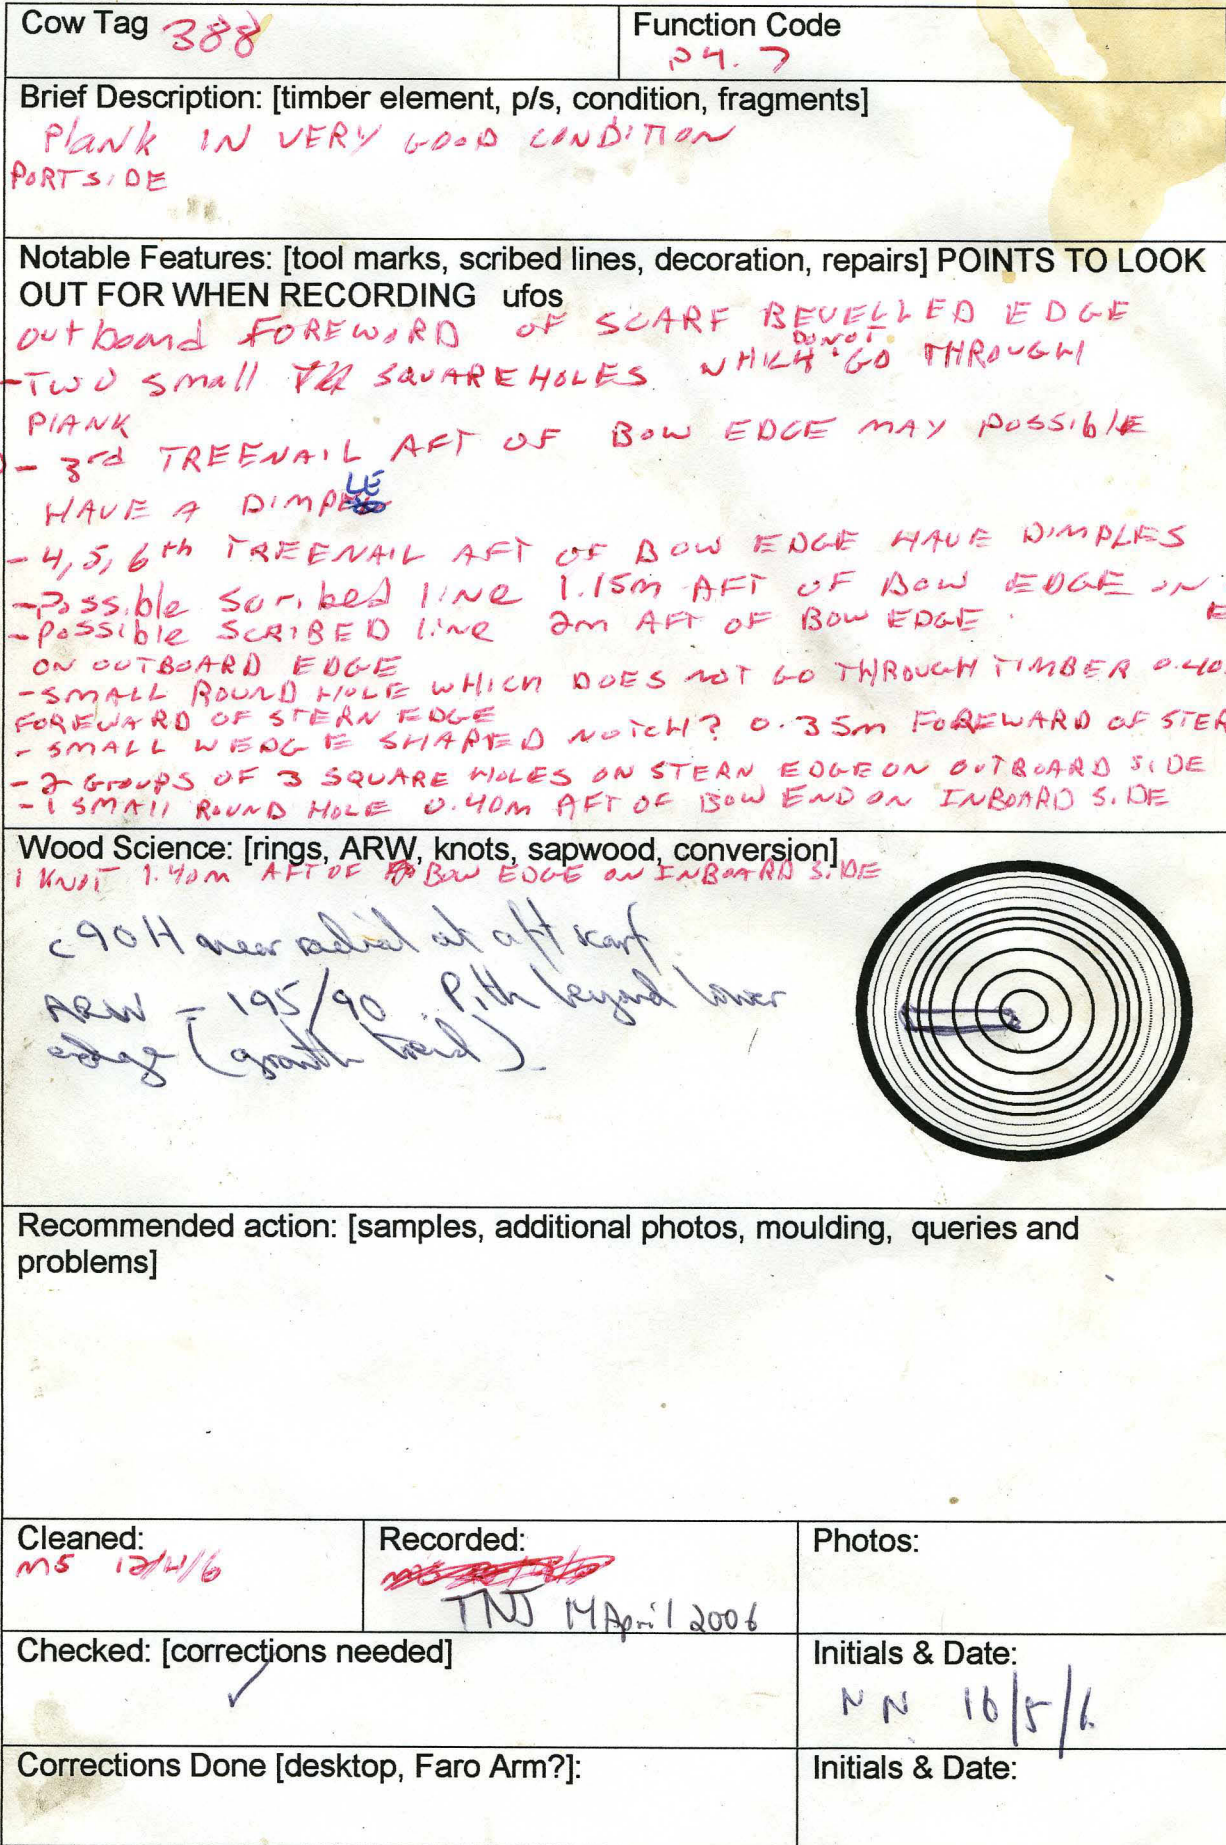 Cow Tag 388
Function Code
P4.7
Brief Description: [timber element, p/s, condition, fragments]
Plank IN VERY GOOD CONDITION
PORTSIDE
Notable Features: [tool marks, scribed lines, decoration, repairs] POINTS TO LOOK
OUT FOR WHEN RECORDING ufos
outboard FOREWORD OF SCARF BEVELLED EDGE
- TWO small SQUARE HOLES WHICH DO NOT GO THROUGH
PlANK
- 3rd TREENAIL AFT OF BOW EDGE MAY possiblE
HAVE A DIMPLE
- 4, 5, 6th TREENAIL AFT OF BOW EDGE HAVE DIMPLES
- Possible Scribed line 1.15m AFT OF BOW EDGE ON
- possible SCRIBED line 2m AFT OF BOW EDGE
ON OUTBOARD EDGE
- SMALL ROUND HOLE WHICH DOES NOT GO THROUGH TIMBER 0.40
FOREWARD OF STERN EDGE
- SMALL WEDGE SHAPED NOTCH? 0.35m FOREWARD OF STER
- 2 Groups OF 3 SQUARE HOLES ON STERN EDGE ON OUTBOARD SIDE
- 1 SMAll ROUND HOLE 0.40m AFT OF BOW END ON INBOARD SIDE
Wood Science: [rings, ARW, knots, sapwood, conversion]
1 KNOT 1.40m AFT OF BOW EDGE ON INBOARD SIDE
c90 H near radial at aft scarf
ARW = 195/90 Pith beyond lower
edge (growth trend).
Recommended action: [samples, additional photos, moulding, queries and
problems]
Cleaned:
MS 12/4/6
Recorded:
TNJ 14 April 2006
Photos:
Checked: [corrections needed]
✓
Initials & Date:
NN 16/5/6
Corrections Done [desktop, Faro Arm?]:
Initials & Date: